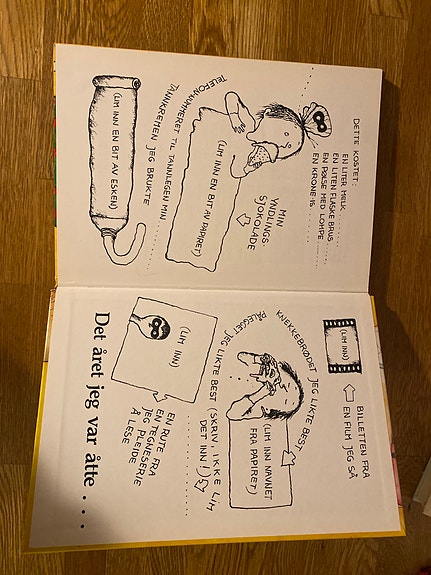 DETTE KOSTET:
EN LITER MELK . . . . . . . .
EN LITEN FLASKE BRUS . . . .
EN PØLSE MED LOMPE . . . .
EN KRONE-IS . . . . . . . .
MIN
YNDLINGS-
SJOKOLADE
(LIM INN EN BIT AV PAPIRET)
TELEFONNUMMERET TIL TANNLEGEN MIN . . . . . . . .
TANNKREMEN JEG BRUKTE
(LIM INN EN BIT AV ESKEN)
(LIM INN)
BILLETTEN FRA
EN FILM JEG SÅ
KNEKKEBRØDET JEG LIKTE BEST
(LIM INN NAVNET
FRA PAPIRET)
PÅLEGGET JEG LIKTE BEST (SKRIV, IKKE LIM
DET INN!)
(LIM INN)
EN RUTE FRA
EN TEGNESERIE
JEG PLEIDE
Å LESE
Det året jeg var åtte . . .